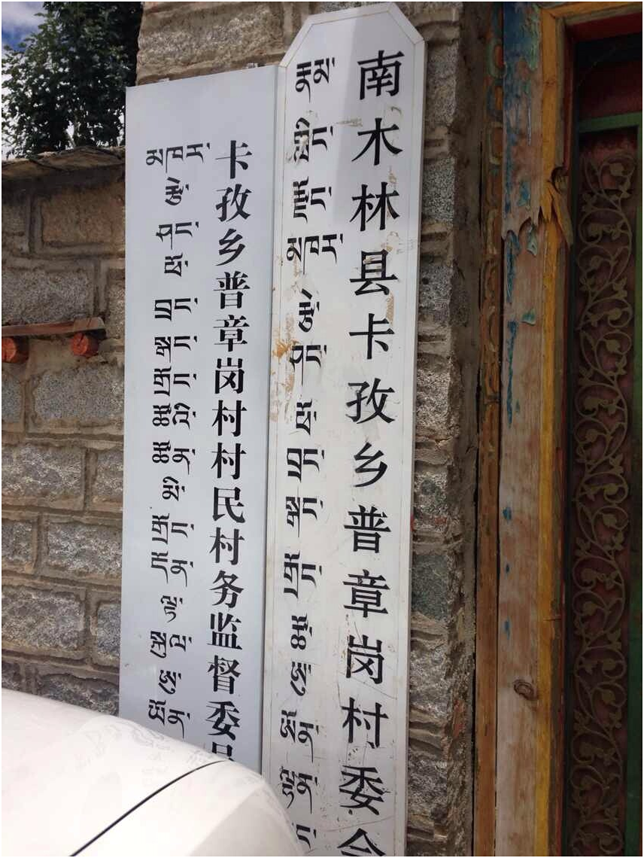 南木林县卡孜乡普章岗村委会
རྣམ་གླིང་རྫོང་མཁར་རྩེ་ཤང་ཕོ་བྲང་སྒང་གྲོང་ཚོ་ཨུ་ཡོན་ལྷན་
卡孜乡普章岗村村民村务监督委员
མཁར་རྩེ་ཤང་ཕོ་བྲང་སྒང་གྲོང་ཚོའི་ཚོན་མི་གྲོང་དོན་ལྟ་སྐུལ་ཨུ་ཡོན་